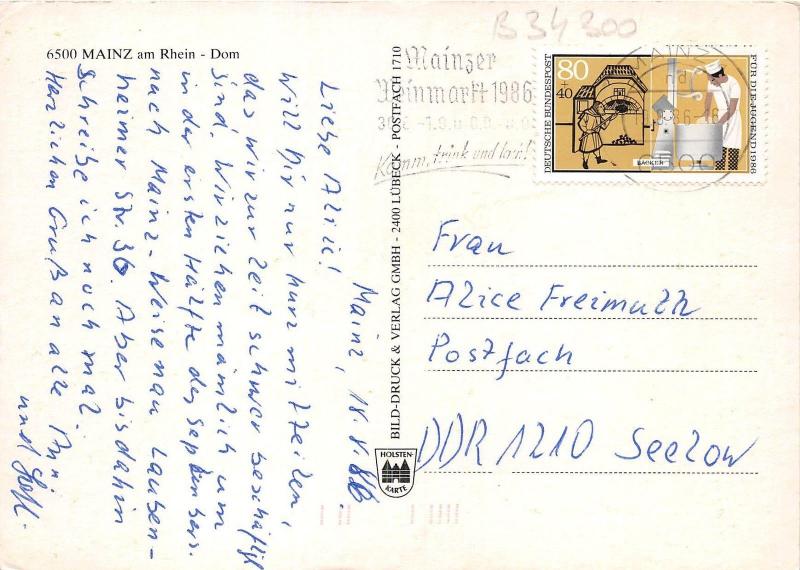 B 34 300
6500 MAINZ am Rhein - Dom
Mainz, 18.8.86
Liebe Alice!
Will Dir nur kurz mitteilen,
das wir zur Zeit schwer beschäftigt
sind. Wir ziehen nämlich um
in der ersten Hälfte des Septembers.
nach Mainz-Weisenau Lauben-
heimer Str. 36. Aber bis dahin
schreibe ich noch mal.
Herzlichen Gruß an alle
und
BILD-DRUCK & VERLAG GMBH - 2400 LÜBECK - POSTFACH 1710
HOLSTEN-
KARTE
Mainzer
Weinmarkt 1986
Komm, trink und lern!
MAINZ
DEUTSCHE BUNDESPOST
80
+40
BÄCKER
FÜR DIE JUGEND 1986
Frau
Alice Freimuth
Postfach
DDR 1210 Seelow